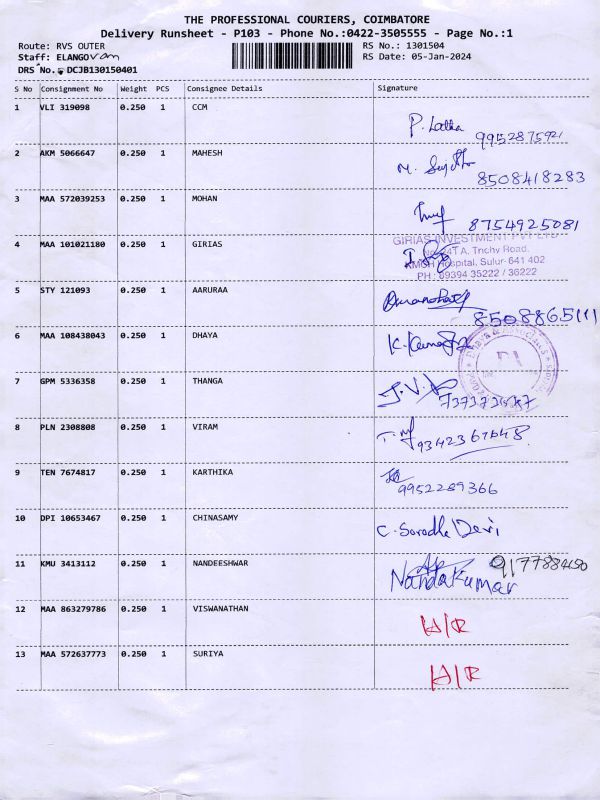 THE PROFESSIONAL COURIERS, COIMBATORE
Delivery Runsheet - P103 - Phone No.:0422-3505555 - Page No.:1
Route: RVS OUTER RS No.: 1301504
Staff: ELANGOvan RS Date: 05-Jan-2024
DRS No.: DCJB130150401
S No Consignment No Weight PCS Consignee Details Signature
1 VLI 319098 0.250 1 CCM
P. Latha 9952875921
2 AKM 5066647 0.250 1 MAHESH
8508418283
3 MAA 572039253 0.250 1 MOHAN
8754925081
4 MAA 101021180 0.250 1 GIRIAS
GIRIAS INVESTMENT PVT LTD
A, Trichy Road,
Hospital, Sulur-641 402
PH : 89394 35222 / 36222
5 STY 121093 0.250 1 AARURAA
8508865111
6 MAA 108438043 0.250 1 DHAYA
K.
7 GPM 5336358 0.250 1 THANGA
J.V.
8 PLN 2308808 0.250 1 VIRAM
9 TEN 7674817 0.250 1 KARTHIKA
9952289366
10 DPI 10653467 0.250 1 CHINASAMY
C. Sarodha Devi
11 KMU 3413112 0.250 1 NANDEESHWAR
NandaKumar
12 MAA 863279786 0.250 1 VISWANATHAN
13 MAA 572637773 0.250 1 SURIYA